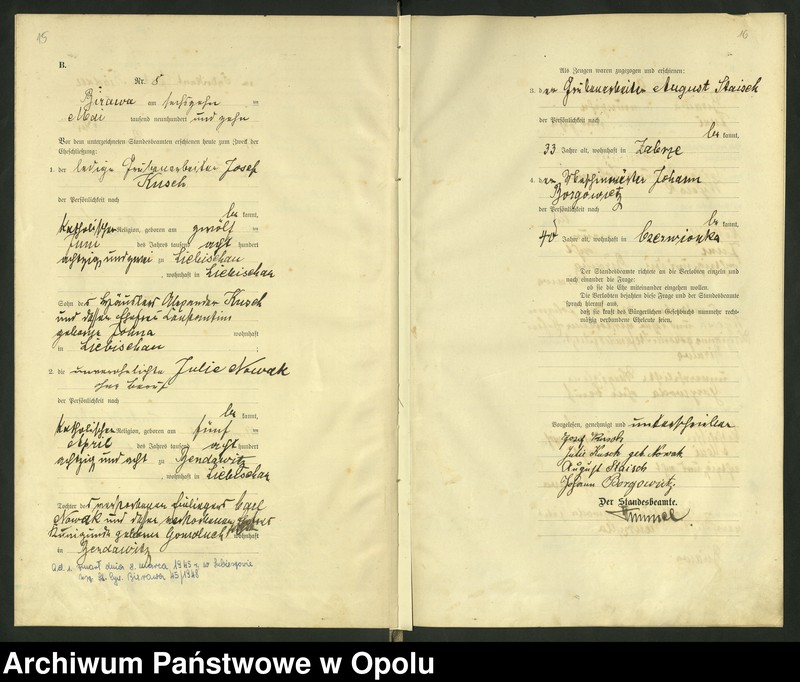 15
B.
Nr. 8
Birawa am sechszehn ten
Mai tausend neunhundert und zehn
Vor dem unterzeichneten Standesbeamten erschienen heute zum Zweck der
Eheschließung:
1. der ledige Grubenarbeiter Josef
Kusch
der Persönlichkeit nach
be kannt,
katholischer Religion, geboren am zwölf ten
Juni des Jahres tausend acht hundert
achtzig und zwei zu Liebischau
, wohnhaft in Liebischau
Sohn des Häuslers Alexander Kusch
und dessen Ehefrau Konstantine
geborene
wohnhaft
in Liebischau ;
2. die unverehelichte Julie Nowak
ohne Beruf
der Persönlichkeit nach
be kannt,
katholischer Religion, geboren am fünf ten
April des Jahres tausend acht hundert
achtzig und acht zu Bendawitz
, wohnhaft in Liebischau
Tochter des verstorbenen Einliegers Carl
Nowak und dessen verstorbenen Ehefrau
Kunigunde geborene Gomoluch wohnhaft
in Bendawitz
Ad. 1. zmarł dnia 8. marca 1945 r. w
Birawa 45/1948
16
Als Zeugen waren zugezogen und erschienen:
3. der Grubenarbeiter August Staisch
der Persönlichkeit nach
be kannt,
33 Jahre alt, wohnhaft in Zabrze
4. der Johann
Borgowietz
der Persönlichkeit nach
be kannt,
40 Jahre alt, wohnhaft in Czerwionka
Der Standesbeamte richtete an die Verlobten einzeln und
nach einander die Frage:
ob sie die Ehe miteinander eingehen wollen.
Die Verlobten bejahten diese Frage und der Standesbeamte
sprach hierauf aus,
daß sie kraft des Bürgerlichen Gesetzbuchs nunmehr recht-
mäßig verbundene Eheleute seien.
Vorgelesen, genehmigt und unterschrieben
Josef Kusch
Julie Kusch geb. Nowak
August Staisch
Johann Borgowietz.
Der Standesbeamte.
Archiwum Państwowe w Opolu